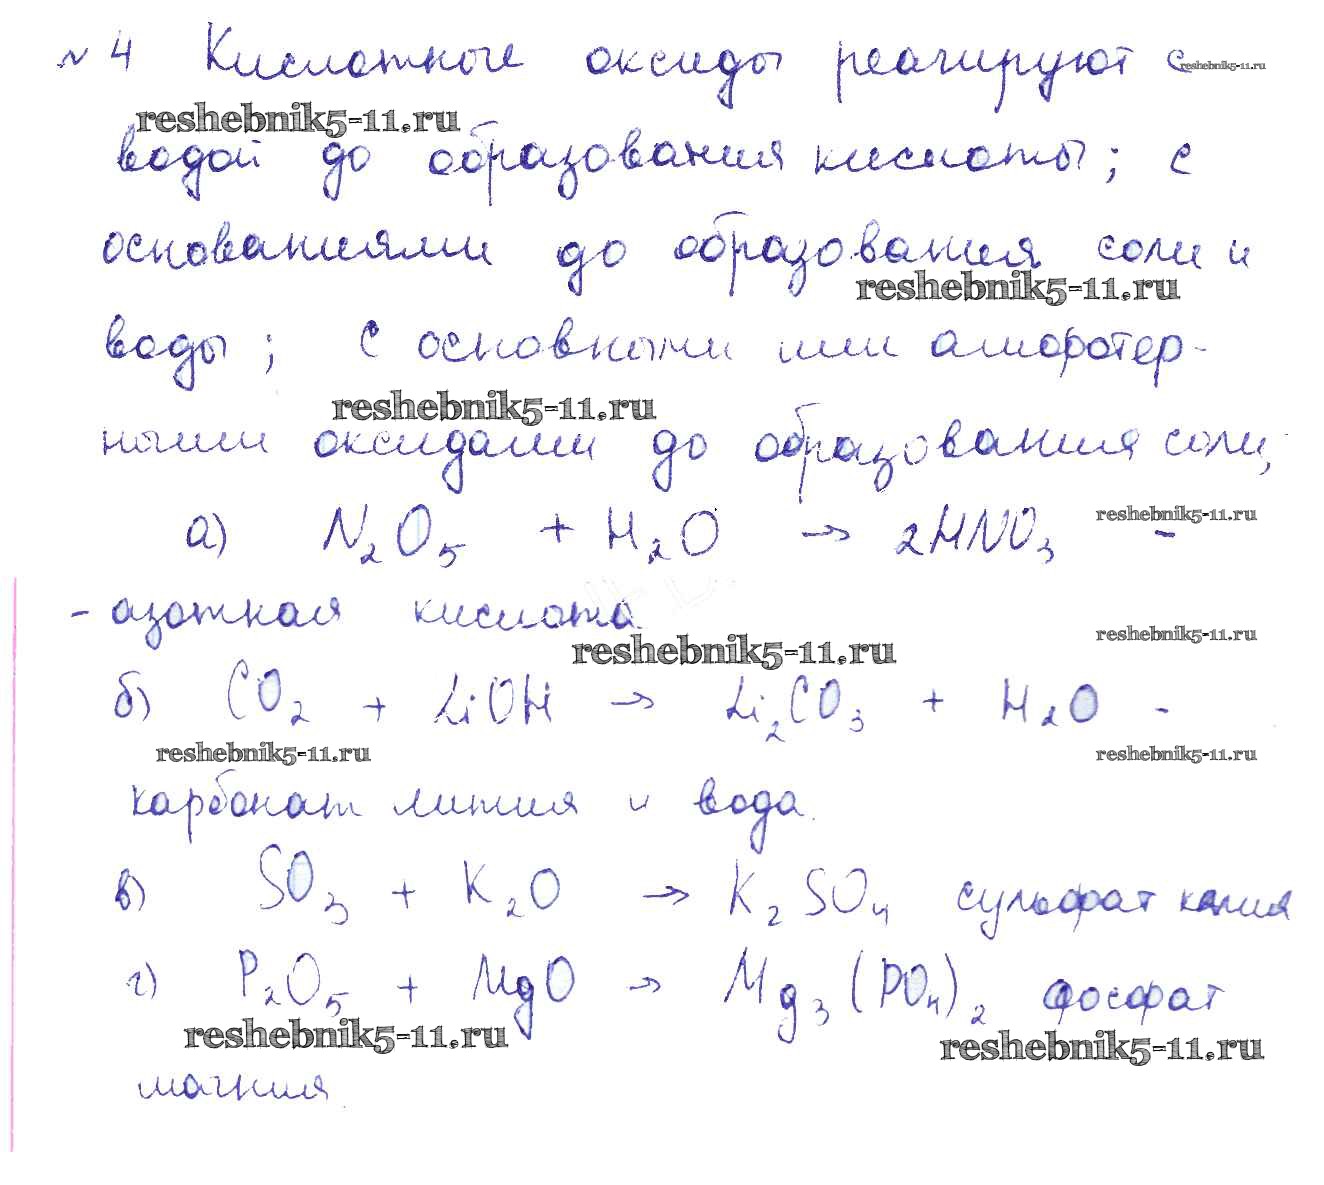 № 4 Кислотные оксиды реагируют с
reshebnik5-11.ru
reshebnik5-11.ru
водой до образования кислоты; с
основаниями до образования соли и
reshebnik5-11.ru
воды; с основными или амфотер-
reshebnik5-11.ru
ными оксидами до образования соли,
а) N₂O₅ + H₂O → 2HNO₃ -
reshebnik5-11.ru
- азотная кислота.
reshebnik5-11.ru
reshebnik5-11.ru
б) CO₂ + LiOH → Li₂CO₃ + H₂O -
reshebnik5-11.ru
reshebnik5-11.ru
карбонат лития и вода.
в) SO₃ + K₂O → K₂SO₄ сульфат калия
г) P₂O₅ + MgO → Mg₃(PO₄)₂ фосфат
reshebnik5-11.ru
reshebnik5-11.ru
магния.